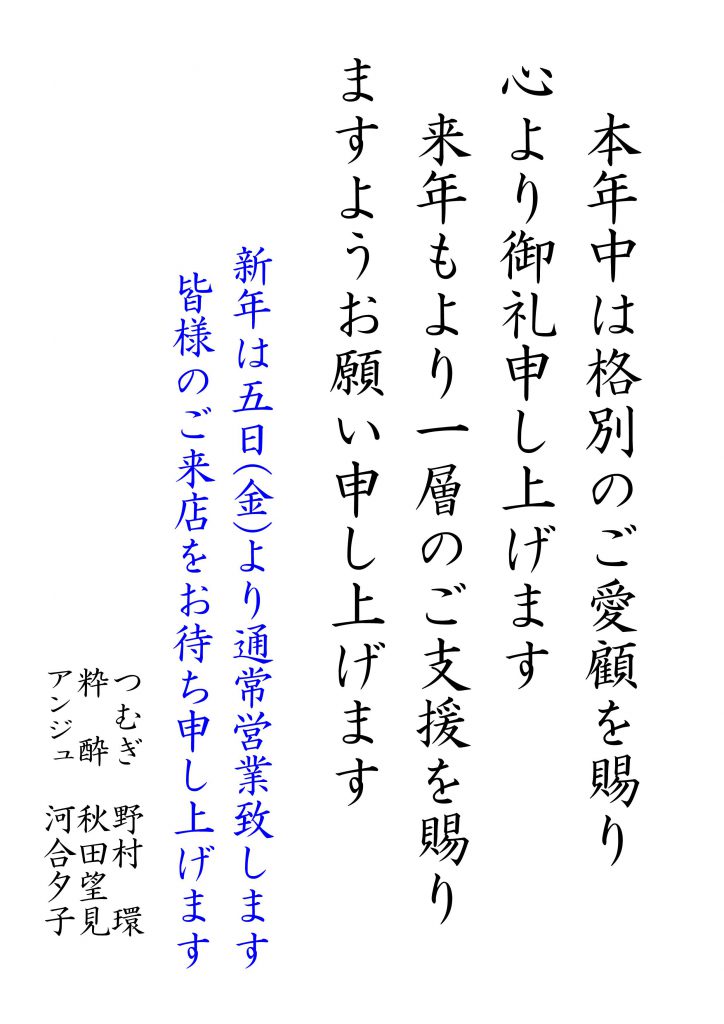 本年中は格別のご愛顧を賜り
心より御礼申し上げます
来年もより一層のご支援を賜り
ますようお願い申し上げます
新年は五日(金)より通常営業致します
皆様のご来店をお待ち申し上げます
つむぎ 野村 環
粋酔 秋田望見
アンジュ 河合夕子